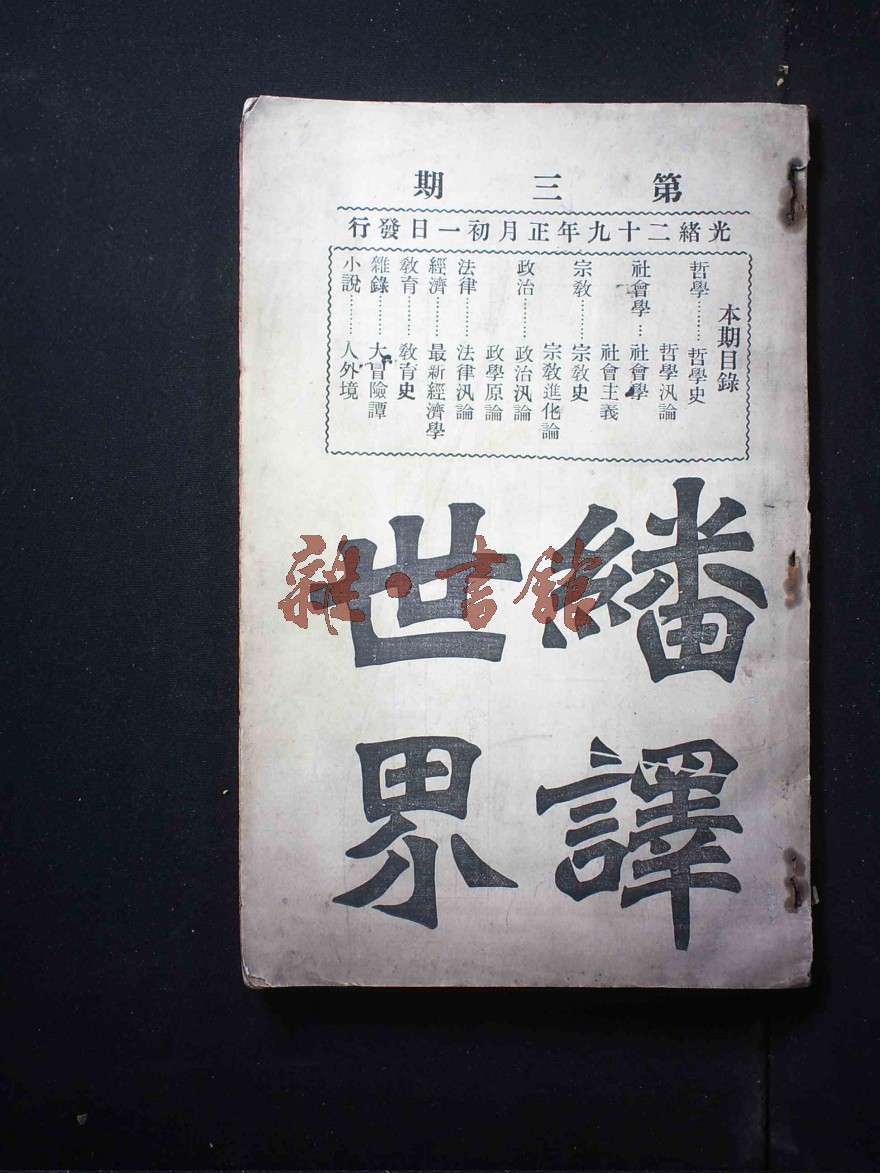 第三期
光緒二十九年正月初一日發行
本期目錄
哲學………哲學史
哲學汎論
社會學…社會學
社會主義
宗教………宗教史
宗教進化論
政治………政治汎論
政學原論
法律………法律汎論
經濟………最新經濟學
教育………教育史
雜錄………大冒險譚
小說………人外境
繙譯
世界
雜·書館